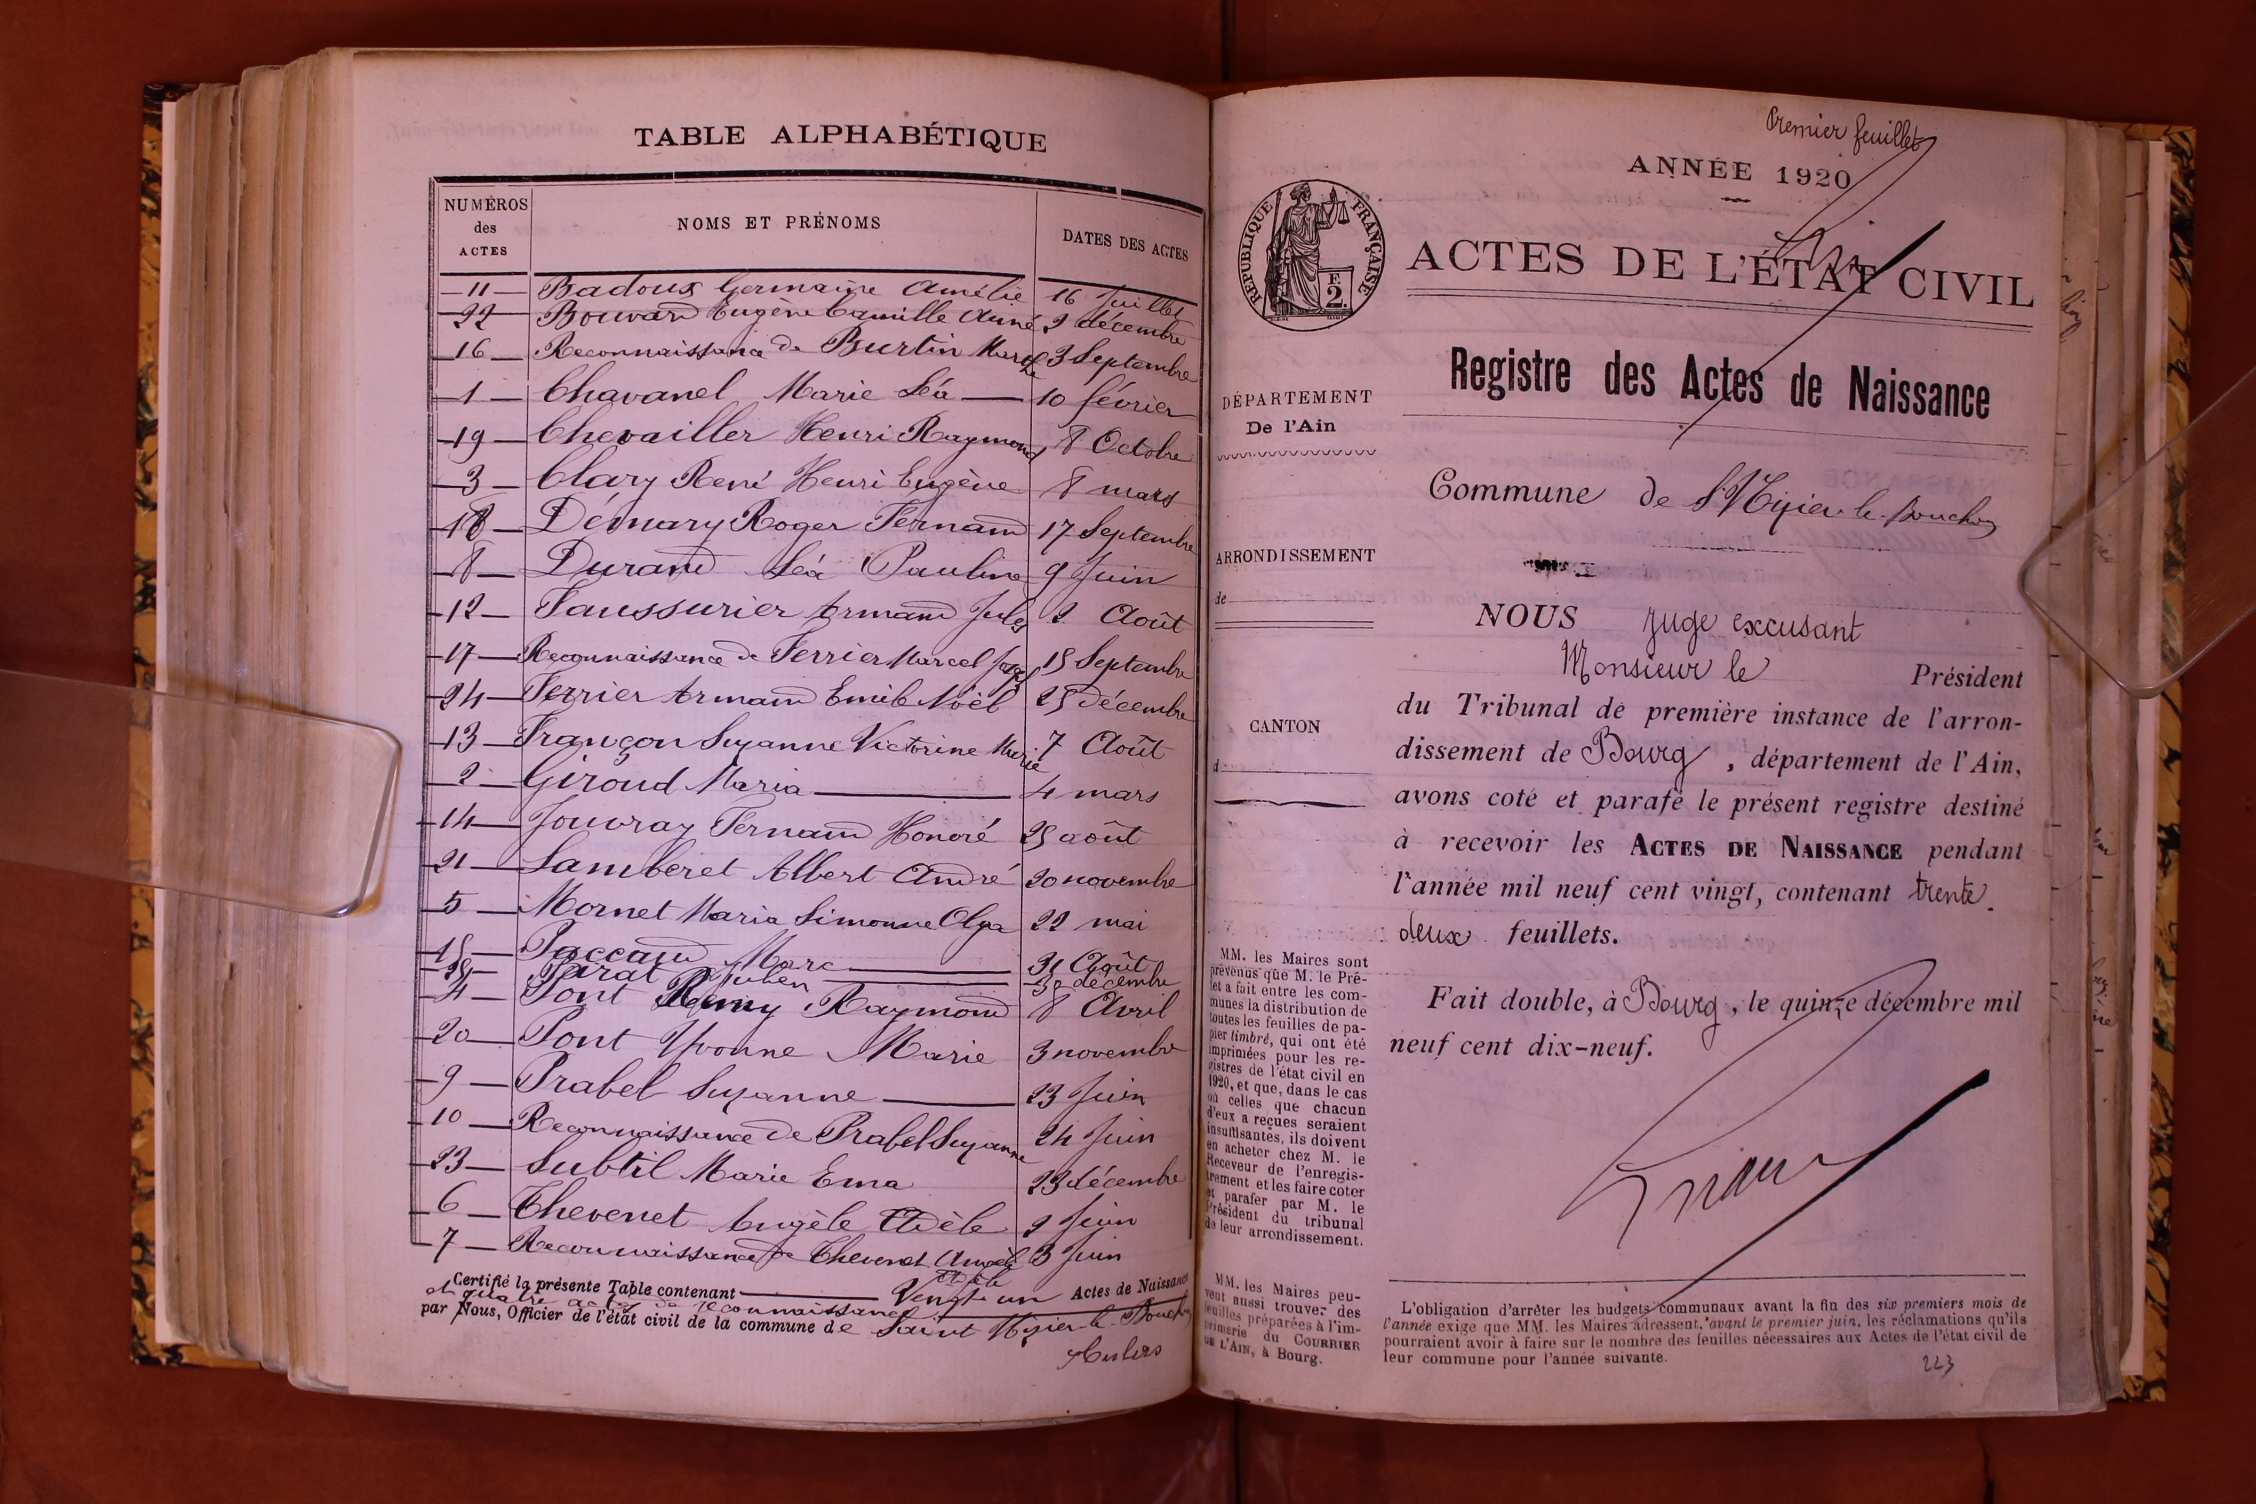 TABLE ALPHABÉTIQUE
NUMÉROS des ACTES NOMS ET PRÉNOMS DATES DES ACTES
11 Badoux Germaine Amélie 16 Juillet
22 Bouvard Eugène Camille Aimé 2 décembre
16 Reconnaissance de Burtin Marthe 3 Septembre
1 Chavanel Marie Léa 10 février
19 Chevailler Henri Raymond 8 Octobre
3 Clary René Henri Eugène 8 mars
18 Roger Fernand 17 Septembre
8 Durand Léa Pauline 9 Juin
12 Faussurier Armand Jules 2 Août
17 Reconnaissance de Ferrier Marcel Joseph 15 Septembre
24 Ferrier Armand Emile Noël 25 décembre
13 Françon Suzanne Victorine Marie 7 Août
2 Giroud Maria 4 mars
14 Jouvray Fernand Honoré 25 août
21 Lamberet Albert André 20 novembre
5 Mornet Maria Simonne Olga 22 mai
15 Paccand Marc 31 Août
25 Pirat Julien 30 décembre
4 Pont Remy Raymond 8 Avril
20 Pont Yvonne Marie 3 novembre
9 Prabel Suzanne 23 Juin
10 Reconnaissance de Prabel Suzanne 24 Juin
23 Subtil Marie Ema 23 décembre
6 Thevenet Angèle Adèle 2 Juin
7 Reconnaissance de Thevenet Angèle Adèle 3 Juin
Certifié la présente Table contenant Vingt un Actes de Naissance
et quatre actes de reconnaissance
par Nous, Officier de l'état civil de la commune de Saint Nizier le Bouchoux
Premier feuillet
ANNÉE 1920
RÉPUBLIQUE FRANÇAISE
F.
2.
ACTES DE L'ÉTAT CIVIL
Registre des Actes de Naissance
DÉPARTEMENT
De l'Ain
ARRONDISSEMENT
de
CANTON
d
Commune de St Nizier-le-Bouchoux
NOUS juge excusant
Monsieur le Président
du Tribunal de première instance de l'arron-
dissement de Bourg, département de l'Ain,
avons coté et parafé le présent registre destiné
à recevoir les ACTES DE NAISSANCE pendant
l'année mil neuf cent vingt, contenant trente-
deux feuillets.
Fait double, à Bourg, le quinze décembre mil
neuf cent dix-neuf.
MM. les Maires sont
prévenus que M. le Pré-
fet a fait entre les com-
munes la distribution de
toutes les feuilles de pa-
pier timbré, qui ont été
imprimées pour les re-
gistres de l'état civil en
1920, et que, dans le cas
où celles que chacun
d'eux a reçues seraient
insuffisantes, ils doivent
en acheter chez M. le
Receveur de l'enregis-
trement et les faire coter
et parafer par M. le
Président du tribunal
de leur arrondissement.
MM. les Maires peu-
vent aussi trouver des
feuilles préparées à l'im-
primerie du COURRIER
DE L'AIN, à Bourg.
L'obligation d'arrêter les budgets communaux avant la fin des six premiers mois de
l'année exige que MM. les Maires adressent, avant le premier juin, les réclamations qu'ils
pourraient avoir à faire sur le nombre des feuilles nécessaires aux Actes de l'état civil de
leur commune pour l'année suivante.
223